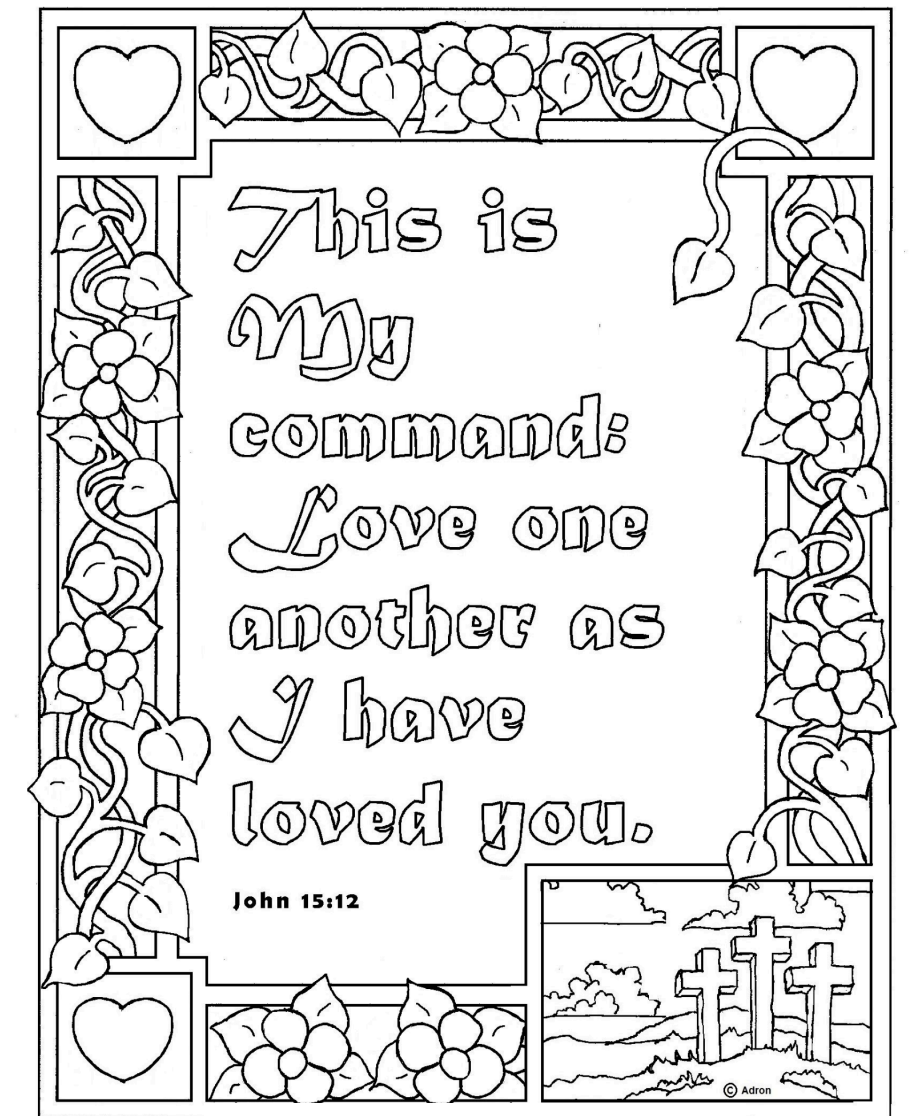 This is
My
command:
Love one
another as
I have
loved you.
John 15:12
© Adron